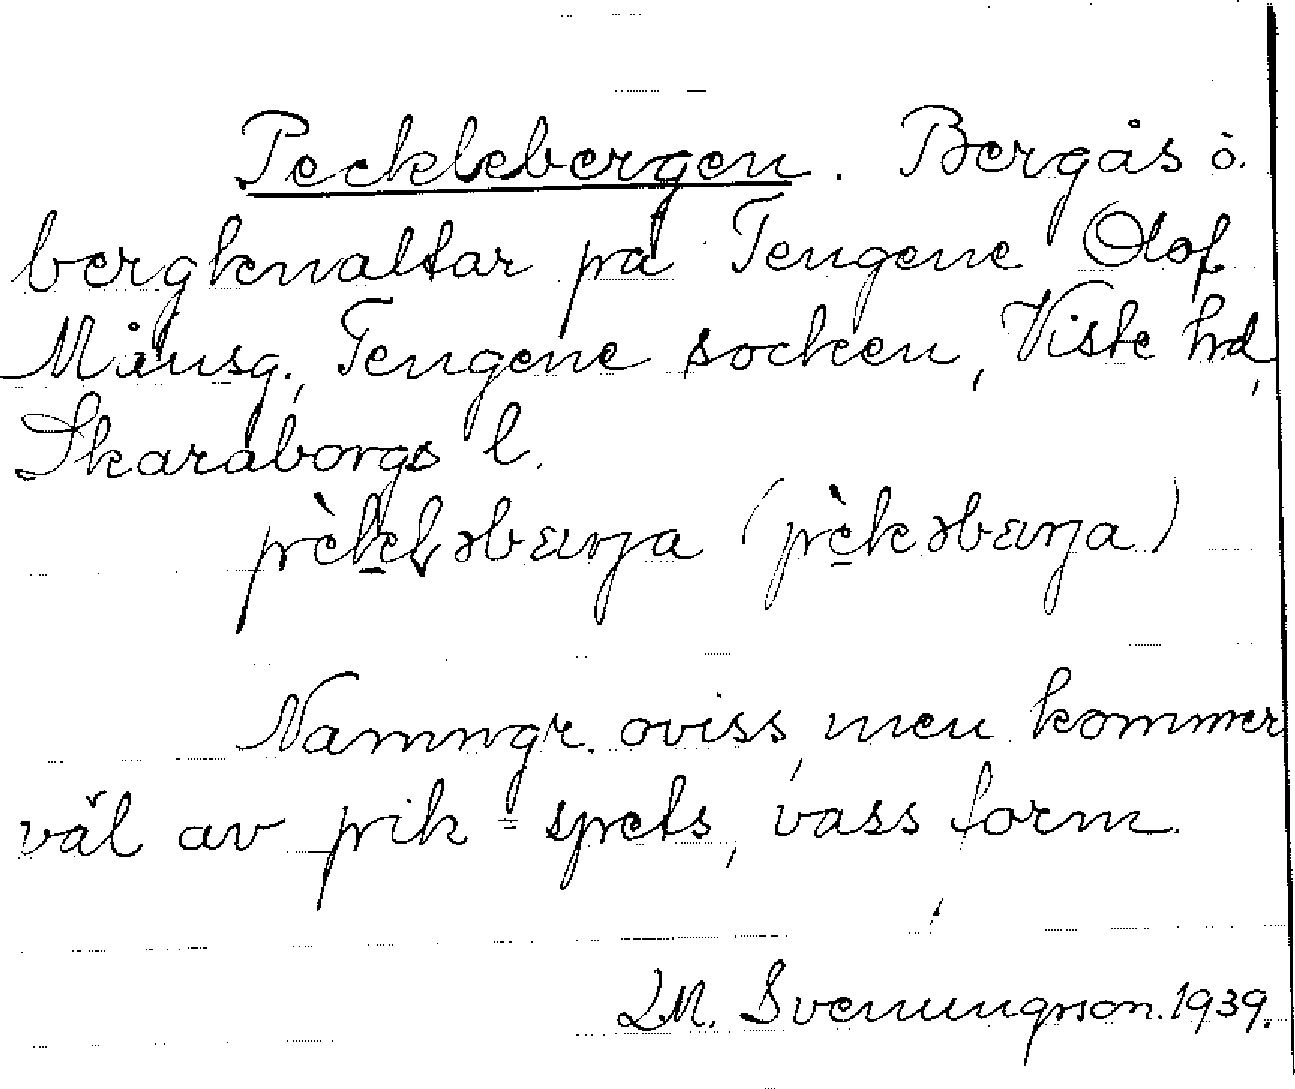 Pecklebergen. Bergås o.
bergknaltar på Tengene Olof
Månsg., Tengene socken, Viste hrd,
Skaraborgs l.
pèkḷəbærja (pèkəbærja)
Namngr. oviss, men kommer
väl av pik = spets, vass form.
LM. Svenungsson. 1939.